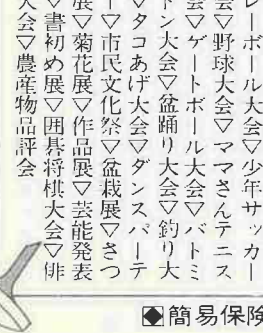 レーボール大会▽少年サッカー
会▽野球大会▽ママさんテニス
会▽ゲートボール大会▽バトミ
トン大会▽盆踊り大会▽釣り大
▽タコあげ大会▽ダンスパーテ
▽市民文化祭▽盆栽展▽さつ
展▽菊花展▽作品展▽芸能発表
▽書初め展▽囲碁将棋大会▽俳
大会▽農産物品評会
◆簡易保険